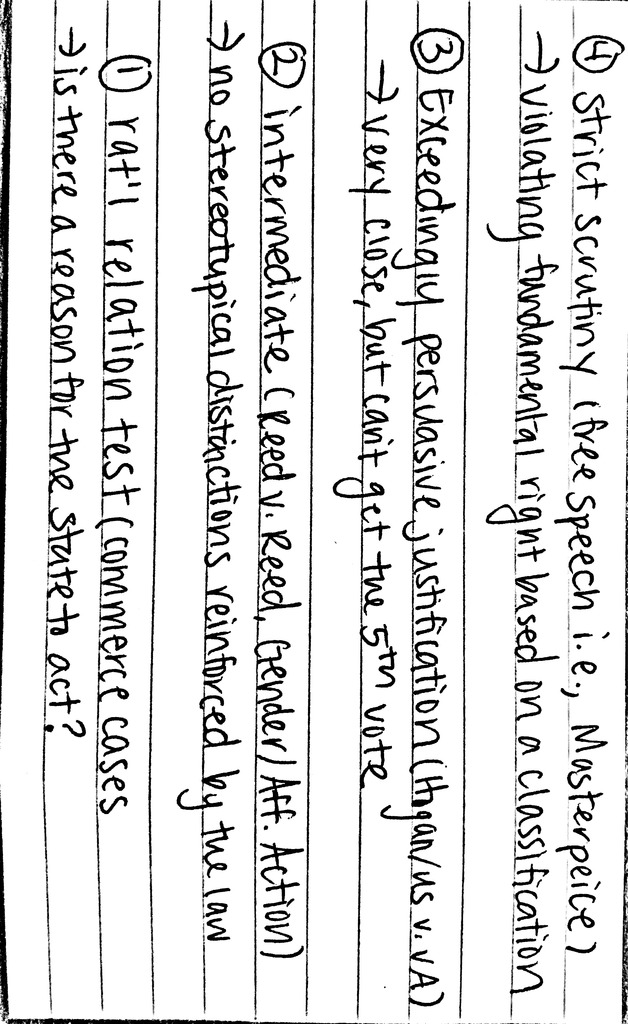 ④ Strict scrutiny (free speech i.e., Masterpeice)
→ violating fundamental right based on a classification
③ Exceedingly persuasive justification (Hogan/US v. VA)
→ very close, but can't get the 5th vote
② intermediate (Reed v. Reed, Gender/Aff. Action)
→ no stereotypical distinctions reinforced by the law
① rat'l relation test (commerce cases
→ is there a reason for the state to act?